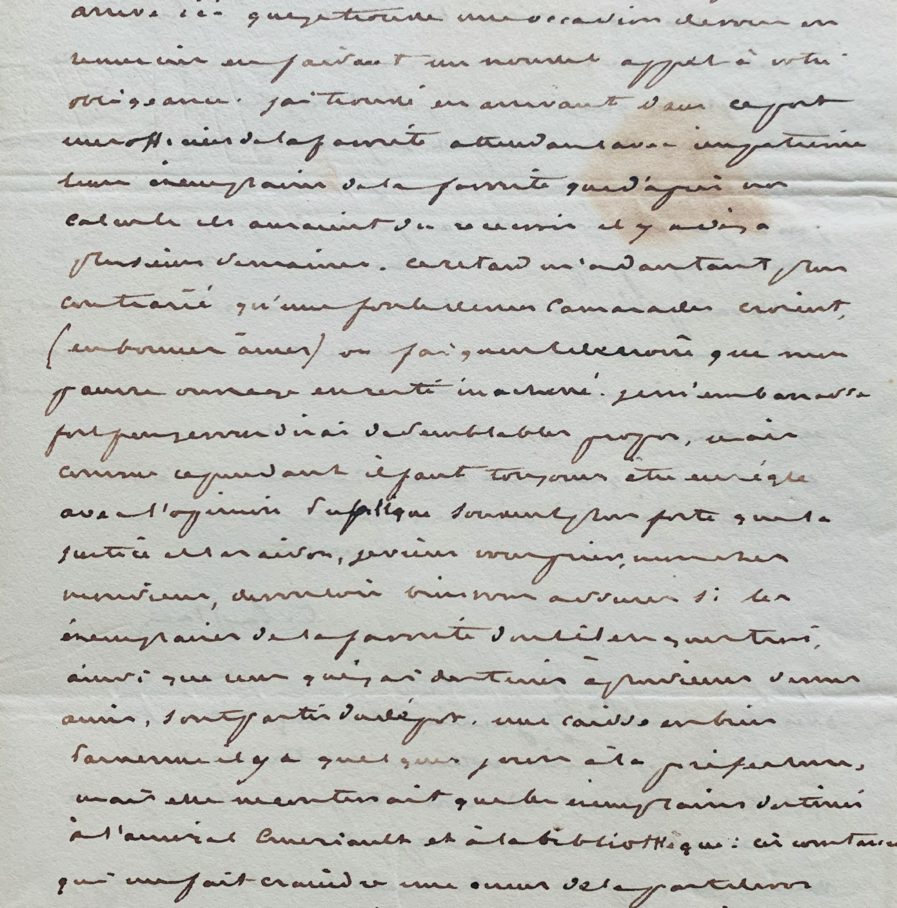 arrivé ici que je trouve une occasion de vous en
remercier en faisant un nouvel appel à votre
obligeance. j'ai trouvé en arrivant dans ce port
mes officiers de la favorite attendant avec impatience
leurs exemplaires de la favorite que d'après nos
calculs ils auraient du recevoir il y a déja
plusieurs semaines. ce retard m'a d'autant plus
contrarié qu'une foule de mes camarades croient,
(en bonnes âmes) ou que mon
pauvre ouvrage en resté inachevé. je m'embarrasse
fort peu je vous dirai de semblables propos, mais
comme cependant il faut toujours être en règle
avec l'opinion publique souvent plus forte que la
justice et la raison, je viens vous prier, mon cher
monsieur, de vouloir bien vous assurer si les
exemplaires de la favorite dont il en question,
ainsi que ceux que j'ai destinés à plusieurs de mes
amis, sont partis du dépot. une caisse en bien
parvenue il y a quelques jours à la préfecture,
mais elle ne contenait que les exemplaires destinés
à l'amiral Emeriault et à la bibliothèque : circonstance
qui me fait craindre une erreur de la part de vos